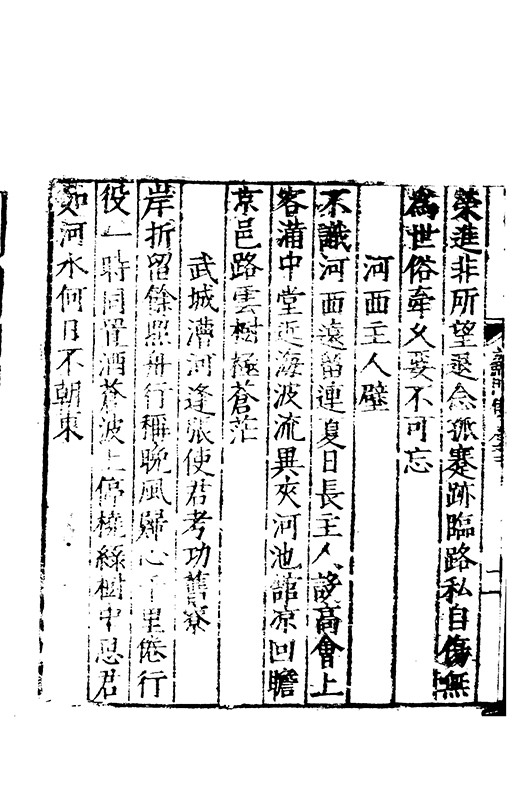 榮進非所望退念孤蹇跡臨路私自傷無
為世俗牽久要不可忘
河西主人壁
不識河西遠留連夏日長主人誇高會上
客滿中堂近海波流異夾河池館涼回瞻
京邑路雲樹極蒼茫
武城漕河逢張使君考功舊寮
岸折留餘照舟行稱晚風歸心千里倦行
役一時同置酒蒼波上停橈綠樹中思君
如河水何日不朝東